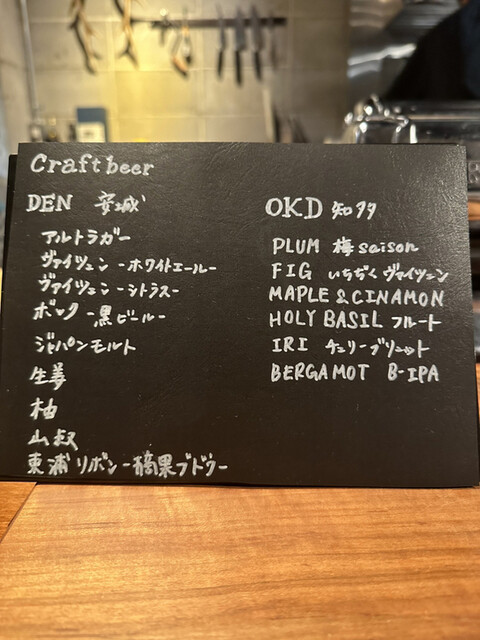 Craftbeer
DEN 安城
アルトラガー
ヴァイツェン-ホワイトエール-
ヴァイツェン-シトラス-
ボック-黒ビール-
ジャパンモルト
生姜
柚
山椒
東浦リボン-摘果ブドウ-
OKD 知多
PLUM 梅saison
FIG いちぢくヴァイツェン
MAPLE & CINAMON
HOLY BASIL フルート
IRI チェリーブリュット
BERGAMOT B-IPA